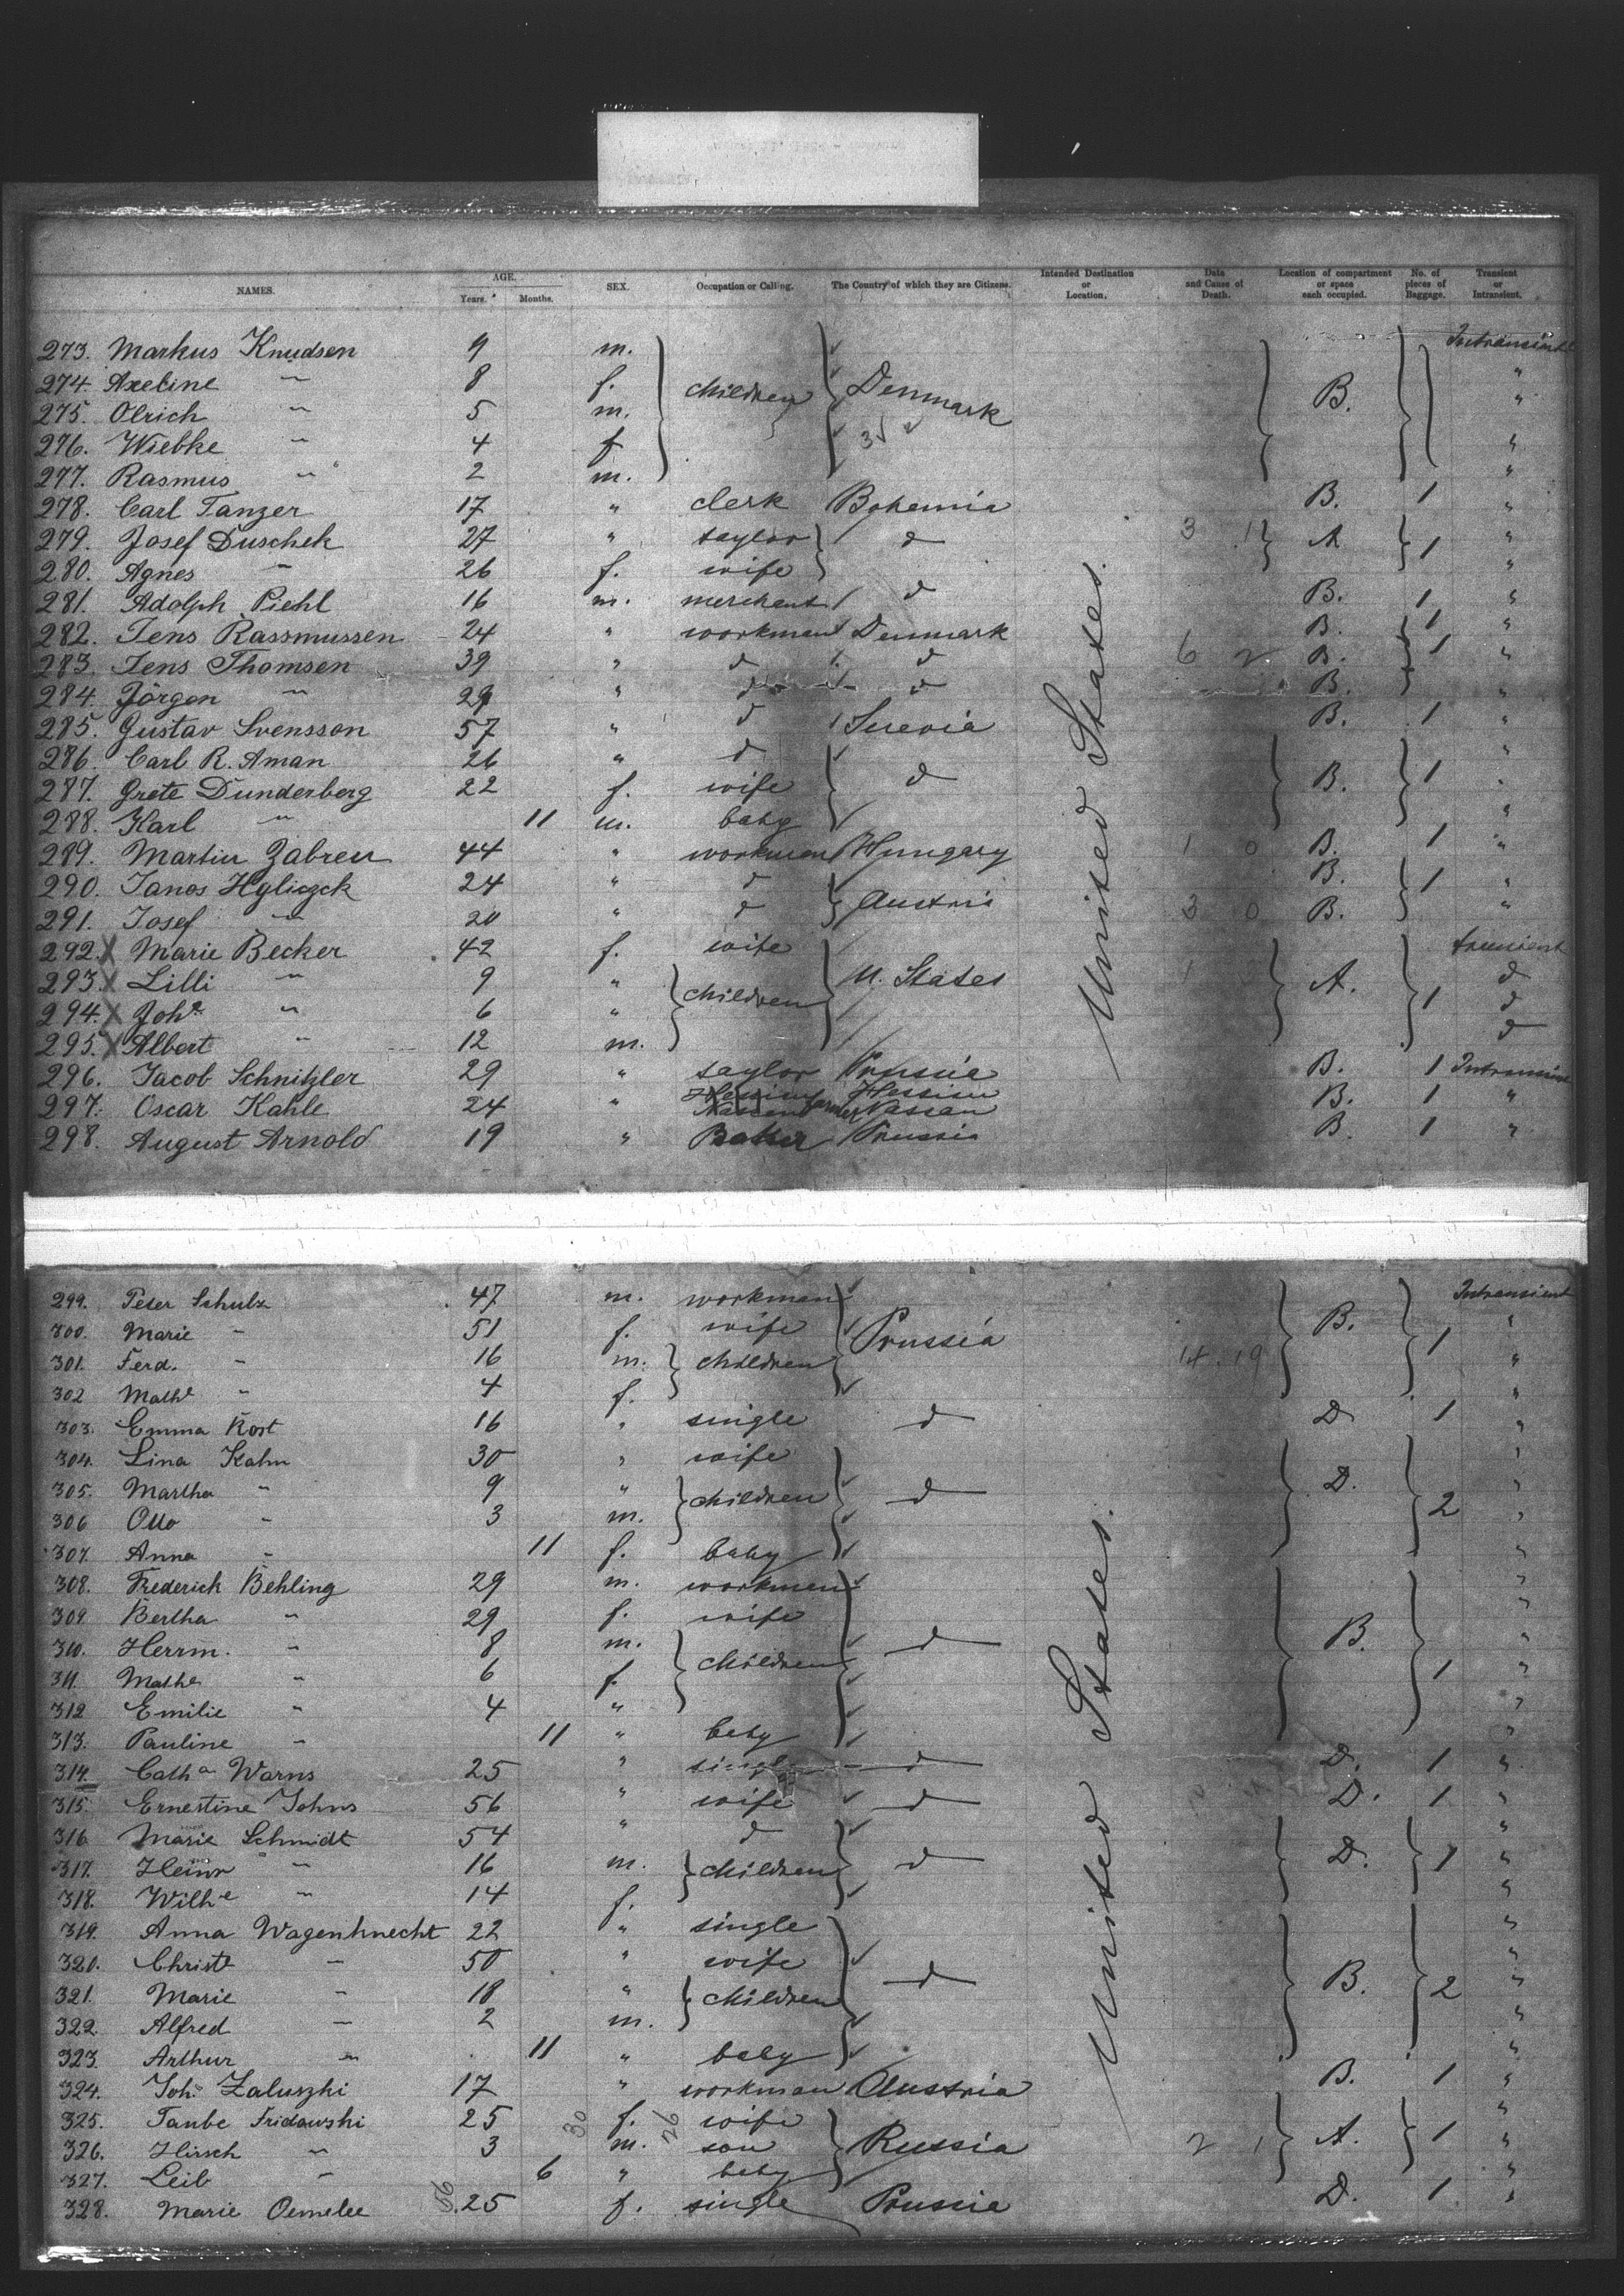 NAMES. AGE. Years. Months. SEX. Occupation or Calling. The Country of which they are Citizens. Intended Destination or Location. Date and Cause of Death. Location of compartment or space each occupied. No. of pieces of Baggage. Transient or Intransient.
273. Markus Knudsen 9 m. Intransient
274. Axeline " 8 f. children Denmark B. "
275. Olrich " 5 m. "
276. Wiebke " 4 f "
277. Rasmus " 2 m. "
278. Carl Tanzer 17 " clerk Bohemia B. 1 "
279. Josef Duschek 27 " taylor d 3 1 A "
280. Agnes " 26 f. wife 1 "
281. Adolph Piehl 16 m. merchant d B. 1 "
282. Jens Rassmussen 24 " workman Denmark B. 1 "
283. Jens Thomsen 39 " d d 6 2 B. 1 "
284. Jörgen " 29 " d d B. "
285. Gustav Svensson 57 " d Suevia B. 1 "
286. Carl R. Aman 26 " d "
287. Grete Dunderberg 22 f. wife d B. 1 "
288. Karl " 11 m. baby "
289. Martin Zabren 44 " workman Hungary 1 0 B. 1 "
290. Janos Hyliczck 24 " d Austria B. 1 "
291. Josef " 20 " d 3 0 B. "
292. X Marie Becker 42 f. wife transient
293. X Lilli " 9 " children U. States 1 A. d
294. X Johe " 6 " 1 d
295. X Albert " 12 m. d
296. Jacob Schnitzler 29 " taylor Prussia B. 1 Intransient
297. Oscar Kahle 24 " farmer Hessian Nassau B. 1 "
298. August Arnold 19 " Baker Prussia B. 1 "
United States.
299. Peter Schulz 47 m. workman Intransient
300. Marie " 51 f. wife Prussia B. "
301. Ferd. " 16 m. children 14 19 1 "
302 Mathe " 4 f. "
303. Emma Rost 16 " single d D 1 "
304. Lina Kahn 30 " wife "
305. Martha " 9 " children d D. "
306 Otto " 3 m. 2 "
307. Anna " 11 f. baby "
308. Frederick Behling 29 m. workman "
309. Bertha " 29 f. wife "
310. Herrm. " 8 m. children d B. "
311. Mathe " 6 f. 1 "
312 Emilie " 4 " "
313. Pauline " 11 " baby "
314. Catha Warns 25 " single d D. 1 "
315. Ernestine Johns 56 " wife d D. 1 "
316 Marie Schmidt 54 " d "
317. Heinr " 16 m. children d D. 1 "
318. Wilhe " 14 f. "
319. Anna Wagenknecht 22 " single "
320. Christe " 50 " wife d "
321. Marie " 18 " children B. 2 "
322. Alfred " 2 m. "
323. Arthur " 11 " baby "
324. Joh. Zaluszki 17 " workman Austria B. 1 "
325. Taube Fridawski 25 30 f. 26 wife "
326. Hirsch " 3 m. son Russia 2 1 A. 1 "
327. Leib " 6 " baby "
328. Marie Oemelee 56 25 f. single Prussia D. 1 "
United States.